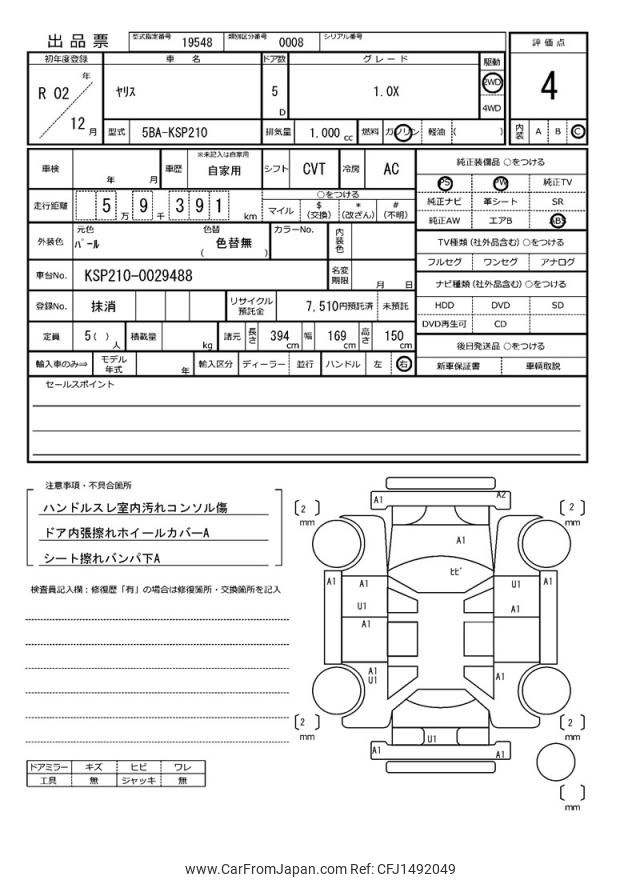 出品票 型式指定番号 19548 類別区分番号 0008 シリアル番号
評価点
4
内装 A B C
初年度登録 車名 ドア数 グレード 駆動
R 02 年 ヤリス 5 D 1.0X 2WD
4WD
12 月 型式 5BA-KSP210 排気量 1.000 cc 燃料 ガソリン 軽油 ( )
車検 年 月 車歴 ※未記入は自家用
自家用 シフト CVT 冷房 AC
走行距離 5 万 9 千 3 9 1 km
○をつける
マイル $ (交換) * (改ざん) # (不明)
外装色 元色 パール 色替 色替無 ( ) カラーNo. 内装色
車台No. KSP210-0029488 名変期限 月 日
登録No. 抹消 リサイクル預託金 7,510円預託済 未預託
定員 5( ) 人 積載量 kg 諸元 長さ 394 cm 幅 169 cm 高さ 150 cm
輸入車のみ⇒ モデル年式 年 輸入区分 ディーラー 並行 ハンドル 左 右
純正装備品 ○をつける
PS PW 純正TV
純正ナビ 革シート SR
純正AW エアB ABS
TV種類(社外品含む)○をつける
フルセグ ワンセグ アナログ
ナビ種類(社外品含む)○をつける
HDD DVD SD
DVD再生可 CD
後日発送品 ○をつける
新車保証書 車輌取説
セールスポイント
注意事項・不具合箇所
ハンドルスレ室内汚れコンソル傷
ドア内張擦れホイールカバーA
シート擦れバンパ下A
検査員記入欄:修復歴「有」の場合は修復箇所・交換箇所を記入
ドアミラー キズ ヒビ ワレ
工具 無 ジャッキ 無
A1 A2
[ 2 ] mm [ 2 ] mm
A1
ヒビ
A1 A1 U1 A1
U1 A1
A1
A1 A1
U1
[ 2 ] mm [ 2 ] mm
U1
A1 A1
[ ] mm
www.CarFromJapan.com Ref: CFJ1492049